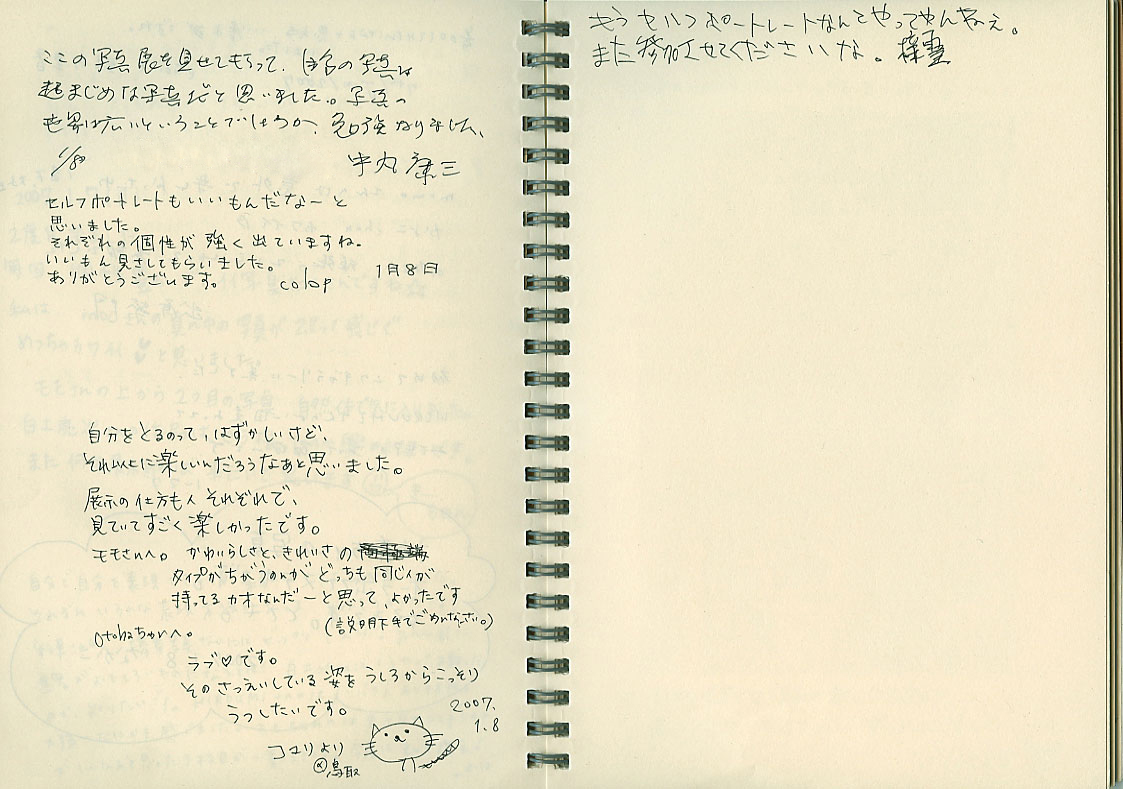 ここの写真展を見せてもらって、自分の写真は
超まじめな写真だと思いました。写真の
世界は広いということでしょうか、勉強なりました、
1/8
中内康三
セルフポートレートもいいもんだなーと
思いました。
それぞれの個性が強く出ていますね。
いいもん見さしてもらいました。
ありがとうございます。
colop 1月8日
自分をとるのって、はずかしいけど、
それ以上に楽しいんだろうなあと思いました。
展示の仕方も人それぞれで、
見ていてすごく楽しかったです。
モモさんへ。かわいらしさと、きれいさの
タイプがちがうのが どっちも同じ人が
持ってるカオなんだーと思って、よかったです
(説明下手でごめんなさい。)
otohaちゃんへ。
ラブ♡です。
そのさつえいしている姿をうしろからこっそり
うつしたいです。
2007.
1.8
コユリより
@鳥取
もうセルフポートレートなんてやってやんねぇ。
また参加させてくださいな。